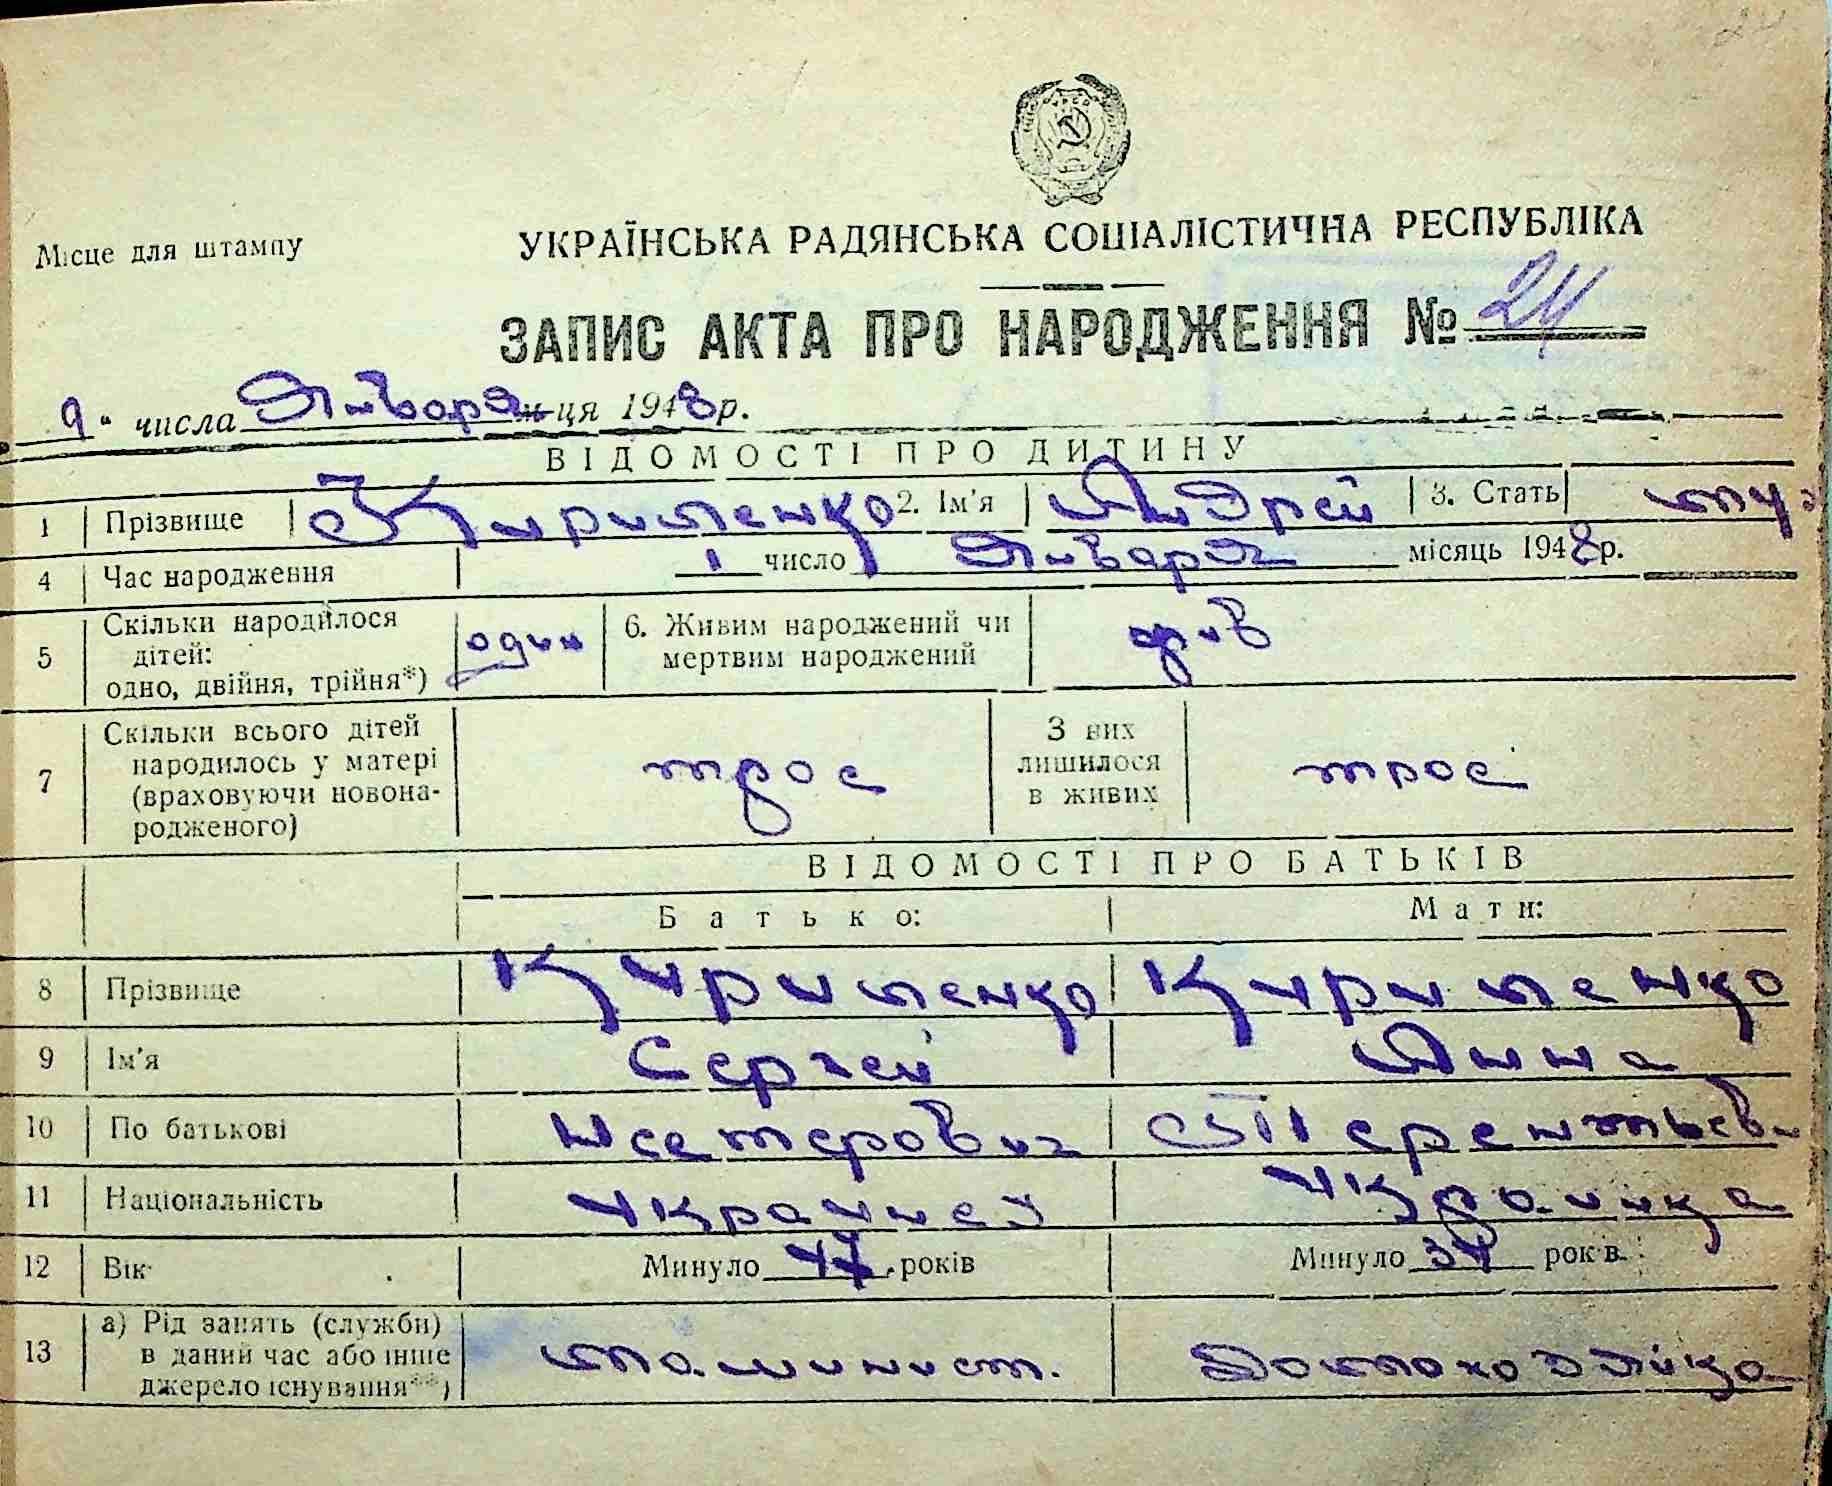 24
Місце для штампу
УКРАЇНСЬКА РАДЯНСЬКА СОЦІАЛІСТИЧНА РЕСПУБЛІКА
ЗАПИС АКТА ПРО НАРОДЖЕННЯ № 24
9" числа Января м-ця 1948 р.
ВІДОМОСТІ ПРО ДИТИНУ
1 Прізвище Кириленко 2. Ім'я Андрей 3. Стать муж
4 Час народження 1 число Января місяць 1948 р.
5 Скільки народилося дітей: одно, двійня, трійня*) один 6. Живим народжений чи мертвим народжений жив
7 Скільки всього дітей народилось у матері (враховуючи новонародженого) трое З них лишилося в живих трое
ВІДОМОСТІ ПРО БАТЬКІВ
Батько: Мати:
8 Прізвище Кириленко Кириленко
9 Ім'я Сергей Анна
10 По батькові Нестерович Терентьевн
11 Національність Украинец Украинка
12 Вік Минуло 47 років Минуло 34 років
13 а) Рід занять (служби) в даний час або інше джерело існування**) машинист. Домохозяйка